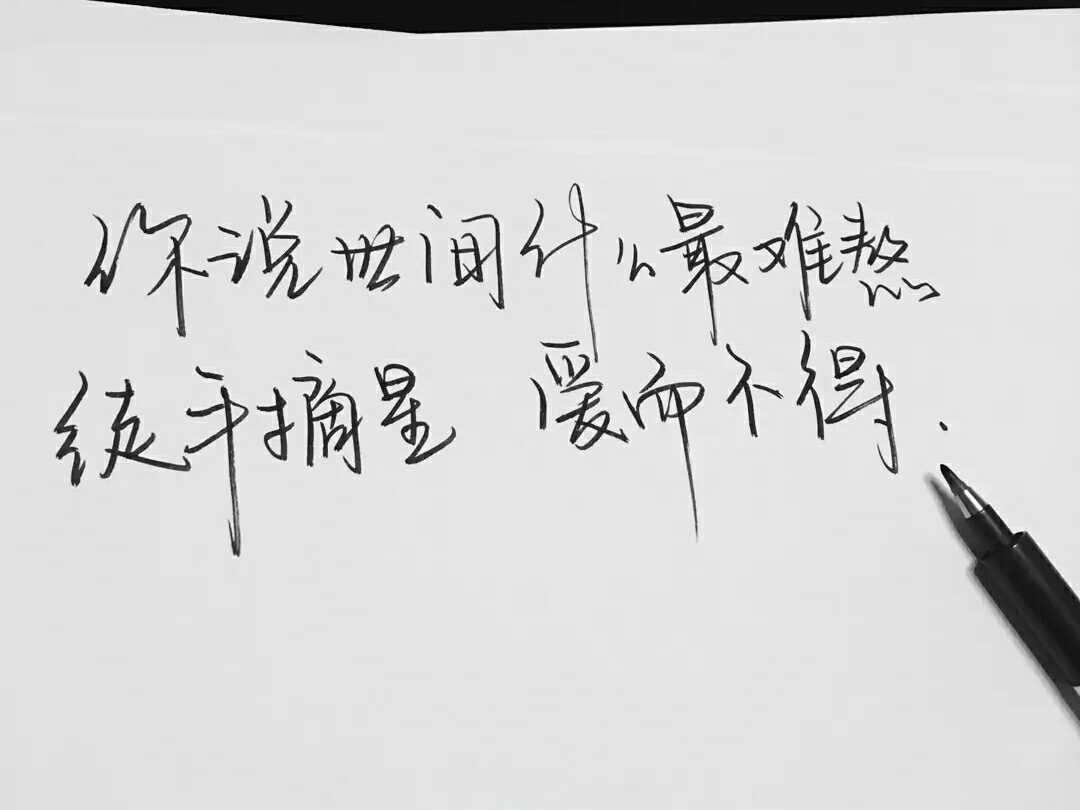 你说世间什么最难熬
徒手摘星 爱而不得.